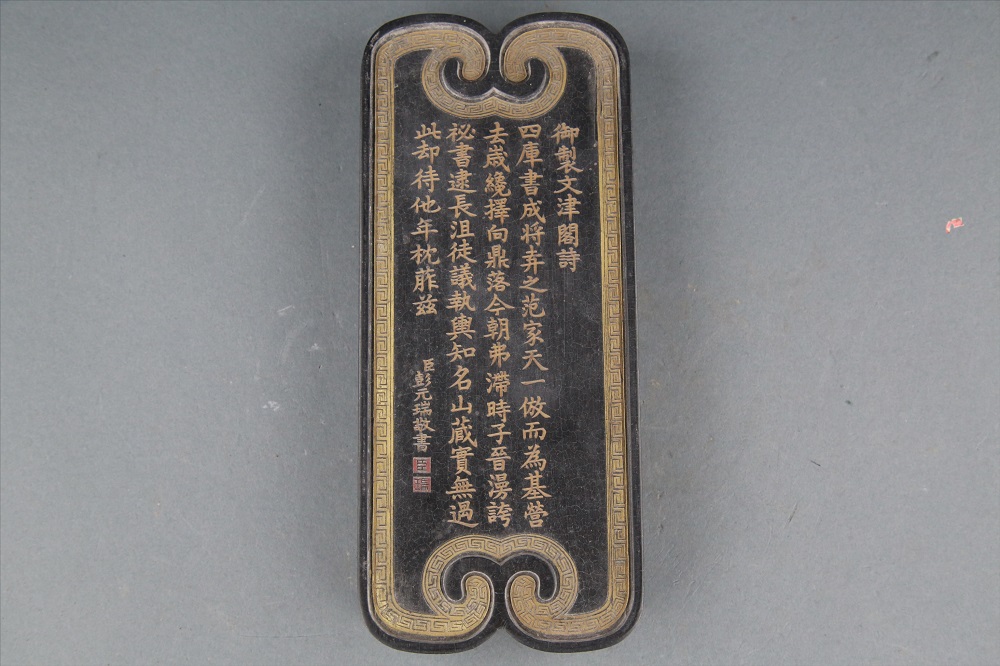 御製文津閣詩
四庫書成將弆之范家天一倣而為基營
去歲纔擇向鼎落今朝弗滯時子晉漫誇
祕書逮長沮徒議執輿知名山蔵實無過
此却待他年枕葄茲
臣彭元瑞敬書
臣